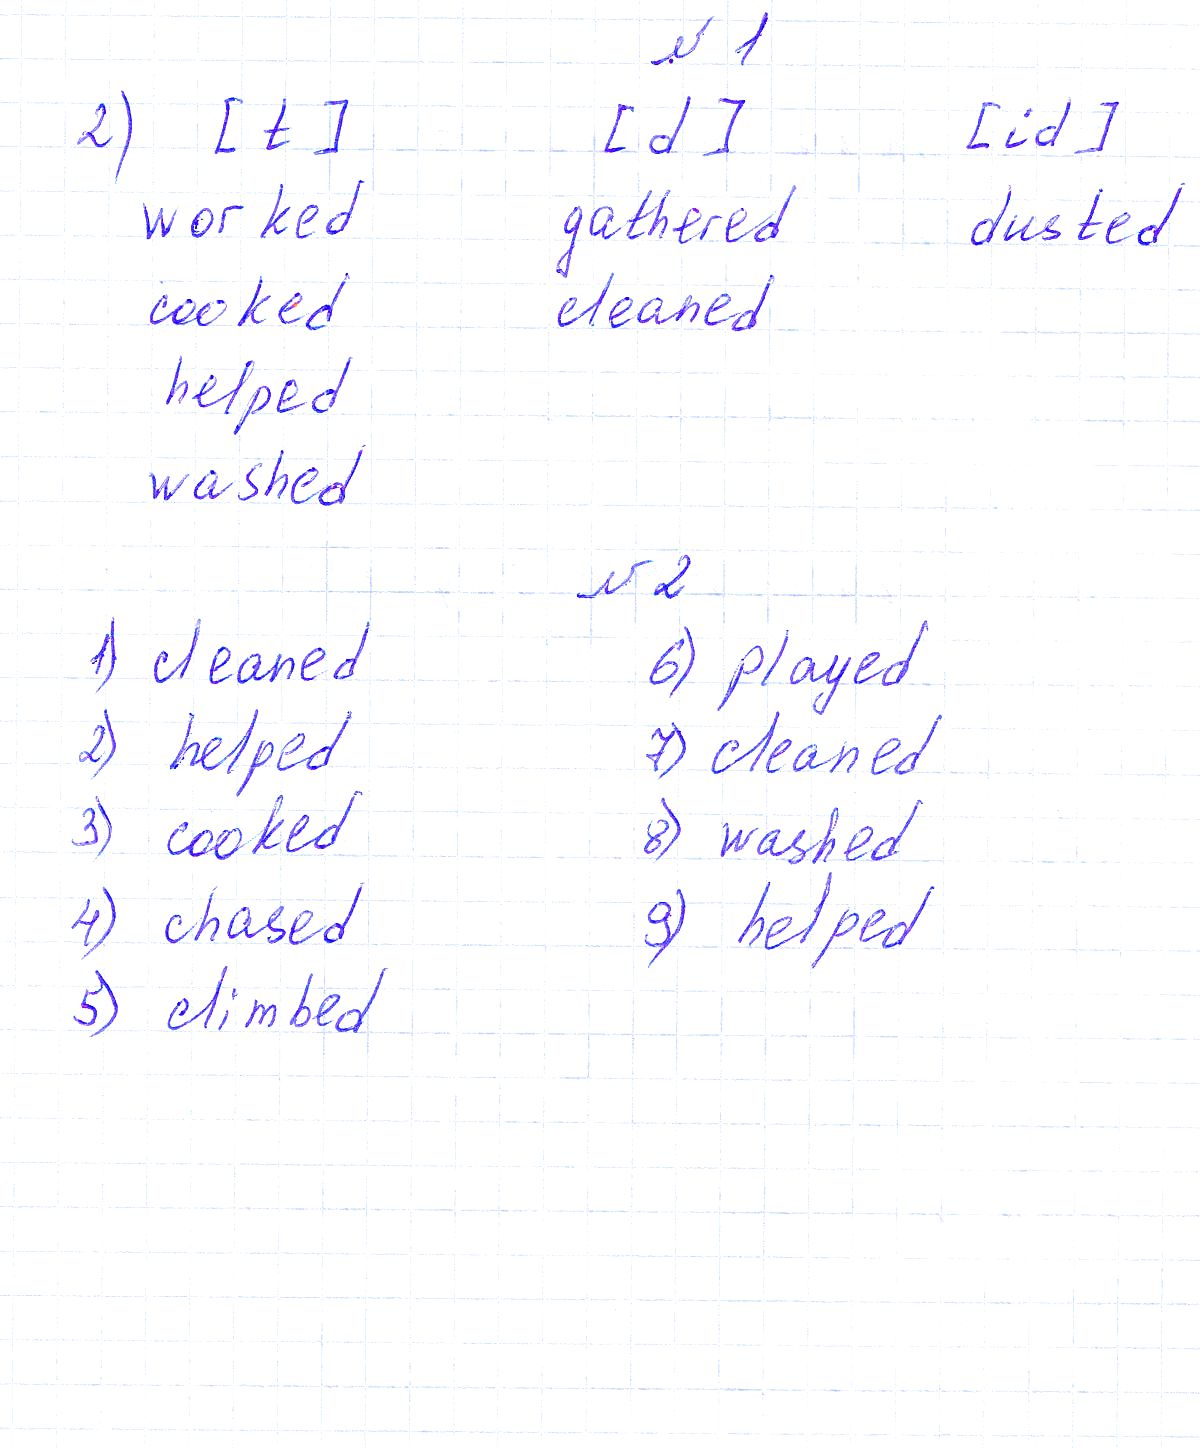 № 1
2) [t] [d] [id]
worked gathered dusted
cooked cleaned
helped
washed
№ 2
1) cleaned 6) played
2) helped 7) cleaned
3) cooked 8) washed
4) chased 9) helped
5) climbed